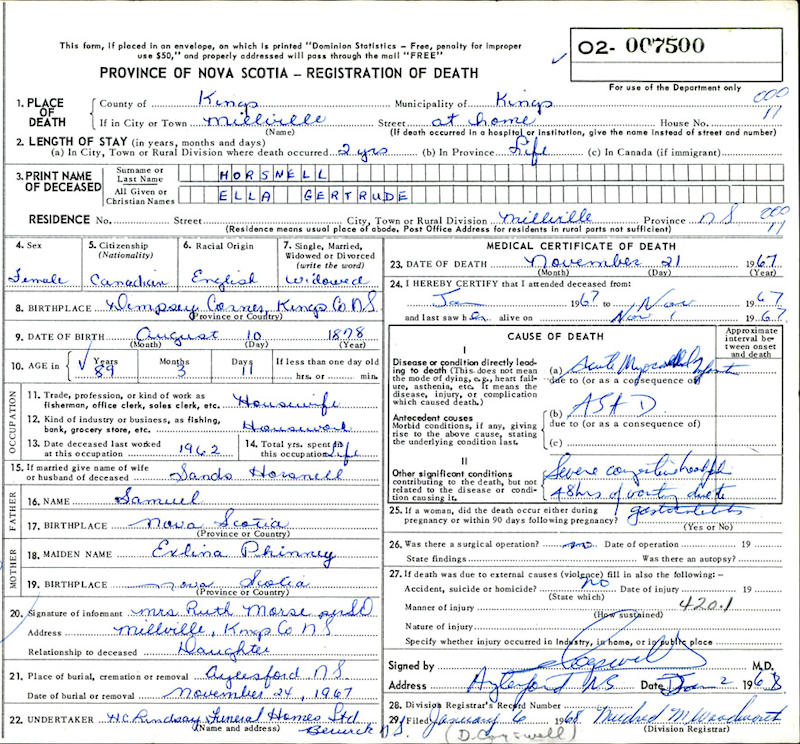 This form, if placed in an envelope, on which is printed "Dominion Statistics – Free, penalty for improper
use $50," and properly addressed will pass through the mail "FREE"
O2- 007500
PROVINCE OF NOVA SCOTIA – REGISTRATION OF DEATH
For use of the Department only
1. PLACE OF DEATH
County of Kings Municipality of Kings 000
If in City or Town Millville Street at home House No. 11
(Name) (If death occurred in a hospital or institution, give the name instead of street and number)
2. LENGTH OF STAY (in years, months and days)
(a) In City, Town or Rural Division where death occurred 2 yrs (b) In Province Life (c) In Canada (if immigrant)
3. PRINT NAME OF DECEASED
Surname or Last Name HORSNELL
All Given or Christian Names ELLA GERTRUDE
RESIDENCE No. Street City, Town or Rural Division Millville Province NS 000 11
(Residence means usual place of abode. Post Office Address for residents in rural parts not sufficient)
4. Sex 5. Citizenship (Nationality) 6. Racial Origin 7. Single, Married, Widowed or Divorced (write the word)
Female Canadian English Widowed
8. BIRTHPLACE Dempsey Corner, Kings Co NS
(Province or Country)
9. DATE OF BIRTH August 10 1878
(Month) (Day) (Year)
10. AGE in Years Months Days If less than one day old
89 3 11 hrs. or min.
OCCUPATION
11. Trade, profession, or kind of work as fisherman, office clerk, sales clerk, etc. Housewife
12. Kind of industry or business, as fishing, bank, grocery store, etc. Housework
13. Date deceased last worked at this occupation 1962 14. Total yrs. spent in this occupation Life
15. If married give name of wife or husband of deceased Sands Horsnell
FATHER
16. NAME Samuel
17. BIRTHPLACE Nova Scotia
(Province or Country)
MOTHER
18. MAIDEN NAME Exlina Phinney
19. BIRTHPLACE Nova Scotia
(Province or Country)
20. Signature of informant Mrs Ruth Morse
Address Millville, Kings Co NS
Relationship to deceased Daughter
21. Place of burial, cremation or removal Aylesford NS
Date of burial or removal November 24, 1967
22. UNDERTAKER H.C. Lindsay Funeral Homes Ltd
(Name and address) Berwick NS
MEDICAL CERTIFICATE OF DEATH
23. DATE OF DEATH November 21 1967
(Month) (Day) (Year)
24. I HEREBY CERTIFY that I attended deceased from:
Jan 1967 to Nov 1967
and last saw her alive on Nov 1 1967
CAUSE OF DEATH
Approximate interval between onset and death
I
Disease or condition directly leading to death (This does not mean the mode of dying, e.g., heart failure, asthenia, etc. It means the disease, injury, or complication which caused death.)
(a) Acute Myocardial Infarction
due to (or as a consequence of)
Antecedent causes
Morbid conditions, if any, giving rise to the above cause, stating the underlying condition last.
(b) ASHD
due to (or as a consequence of)
(c)
II
Other significant conditions contributing to the death, but not related to the disease or condition causing it.
Severe congestive heart
48 hrs of vomiting due to
25. If a woman, did the death occur either during pregnancy or within 90 days following pregnancy?
(Yes or No)
26. Was there a surgical operation? no Date of operation 19
State findings Was there an autopsy?
27. If death was due to external causes (violence) fill in also the following:–
Accident, suicide or homicide? no Date of injury 19
(State which)
Manner of injury 420.1
(How sustained)
Nature of injury
Specify whether injury occurred in Industry, in home, or in public place
Signed by Cogswell M.D.
Address Aylesford N.S. Date Jan 2 1968
28. Division Registrar's Record Number
29. Filed January 6 1968 Mildred M Woodworth
(D. Cogswell) (Division Registrar)